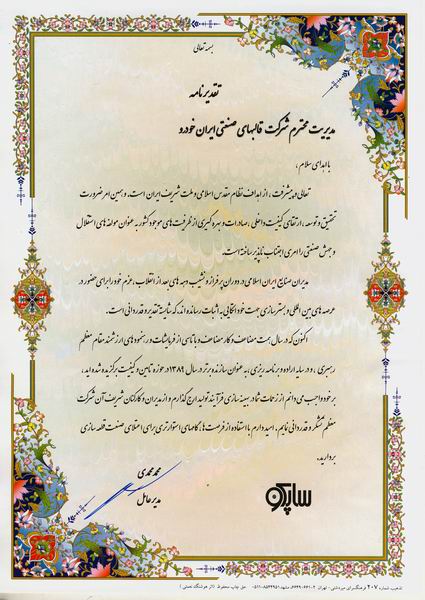 بسمه تعالی
تقدیرنامه
مدیریت محترم شرکت قالبهای صنعتی ایران خودرو
با اهدای سلام ،
تعالی و پیشرفت ، از اهداف نظام مقدس اسلامی و ملت شریف ایران است . و همین امر ضرورت
تحقیق و توسعه ، ارتقای کیفیت داخلی ، صادرات و بهره گیری از ظرفیت های موجود کشور به عنوان مولفه های استقلال
و جهش صنعتی را امری اجتناب ناپذیر ساخته است .
مدیران صنایع ایران اسلامی در دوران پر فراز و نشیب دهه های بعد از انقلاب ، عزم خود را برای حضور در
عرصه های بین المللی و بستر سازی جهت خود اتکایی به اثبات رسانده اند ، که شایسته تقدیر و قدردانی است .
اکنون که در سال همت مضاعف و کار مضاعف و با تاسی از فرمایشات و رهنمودهای ارزشمند مقام معظم
رهبری ، و در سایه اراده و برنامه ریزی ، به عنوان سازنده برتر در سال ۱۳۸۹ در حوزه تامین و کیفیت برگزیده شده اید ،
بر خود واجب می دانم از زحمات شما در بهینه سازی فرآیند تولید ارج گذارم و از مدیران و کارکنان شریف آن شرکت
معظم تشکر و قدردانی نمایم . امید دارم با استفاده از فرصت ها ، گامهای استوارتری برای اعتلای صنعت قطعه سازی
بردارید .
محمد محمدی
مدیر عامل
ساپکو
تذهیب شماره ۲۰۷ فرهنگسرای میردشتی - تهران
حق چاپ محفوظ